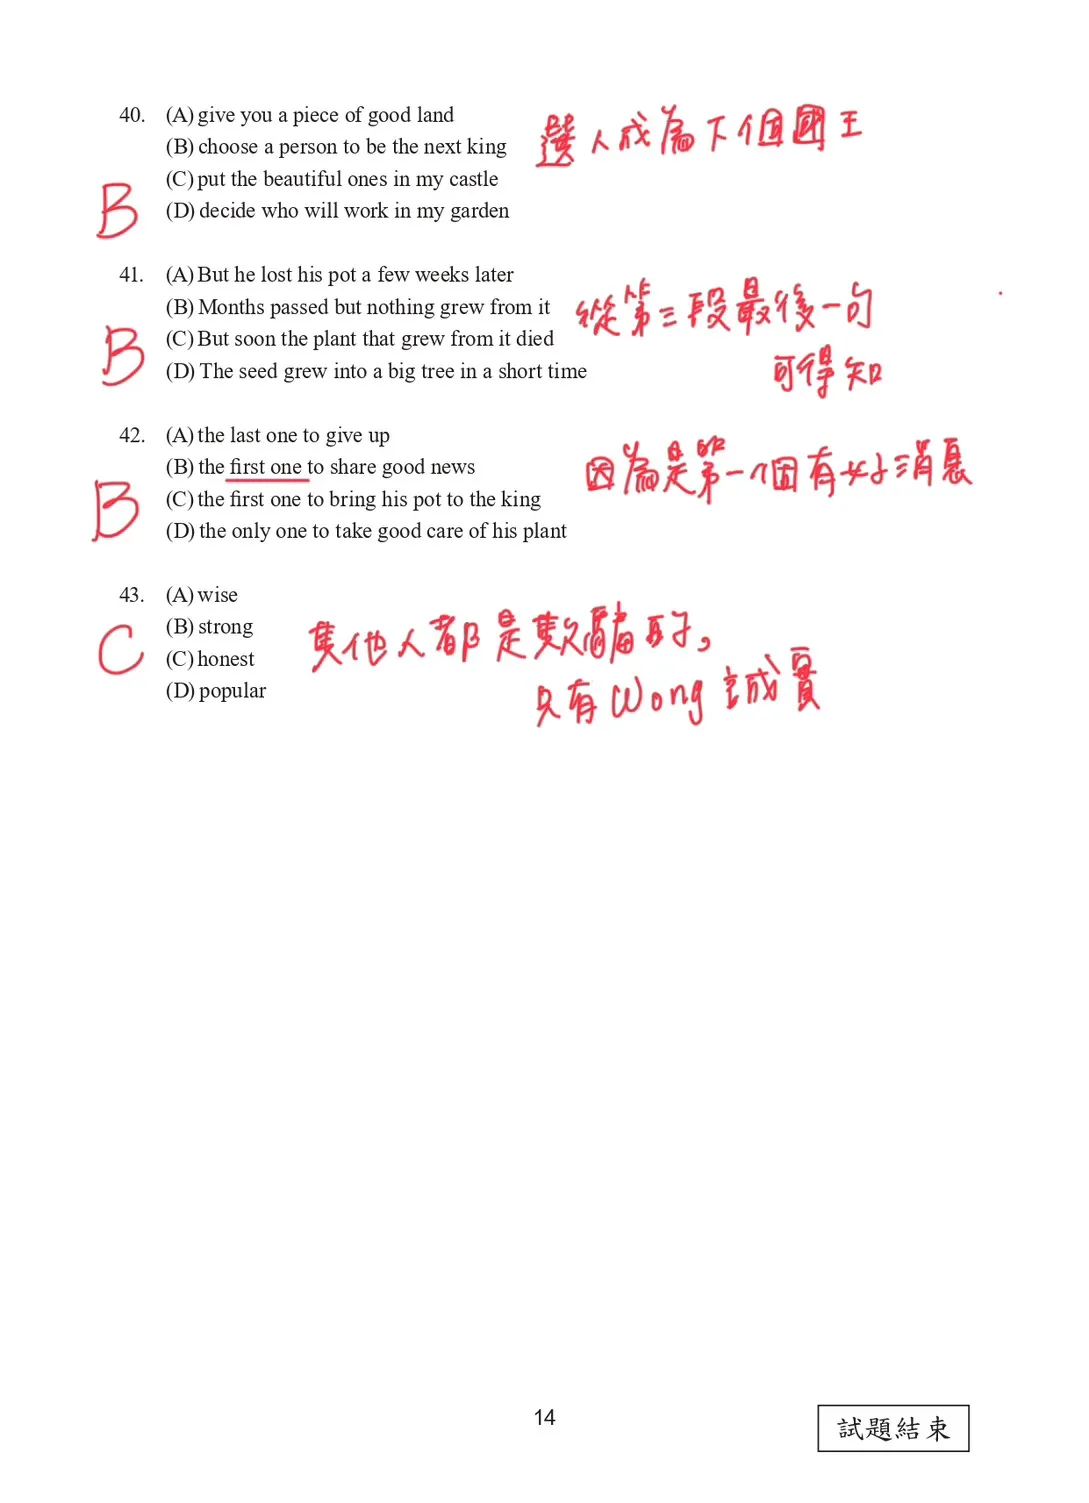 40. (A) give you a piece of good land
(B) choose a person to be the next king
選人成為下個國王
(C) put the beautiful ones in my castle
B
(D) decide who will work in my garden
41. (A) But he lost his pot a few weeks later
(B) Months passed but nothing grew from it
從第三段最後一句
B
(C) But soon the plant that grew from it died
(D) The seed grew into a big tree in a short time
可得知
42. (A) the last one to give up
(B) the first one to share good news
因為是第一個有好消息
B
(C) the first one to bring his pot to the king
(D) the only one to take good care of his plant
43. (A) wise
(B) strong
其他人都是欺騙
C
(C) honest
(D) popular
只有Wong誠實
14
試題結束